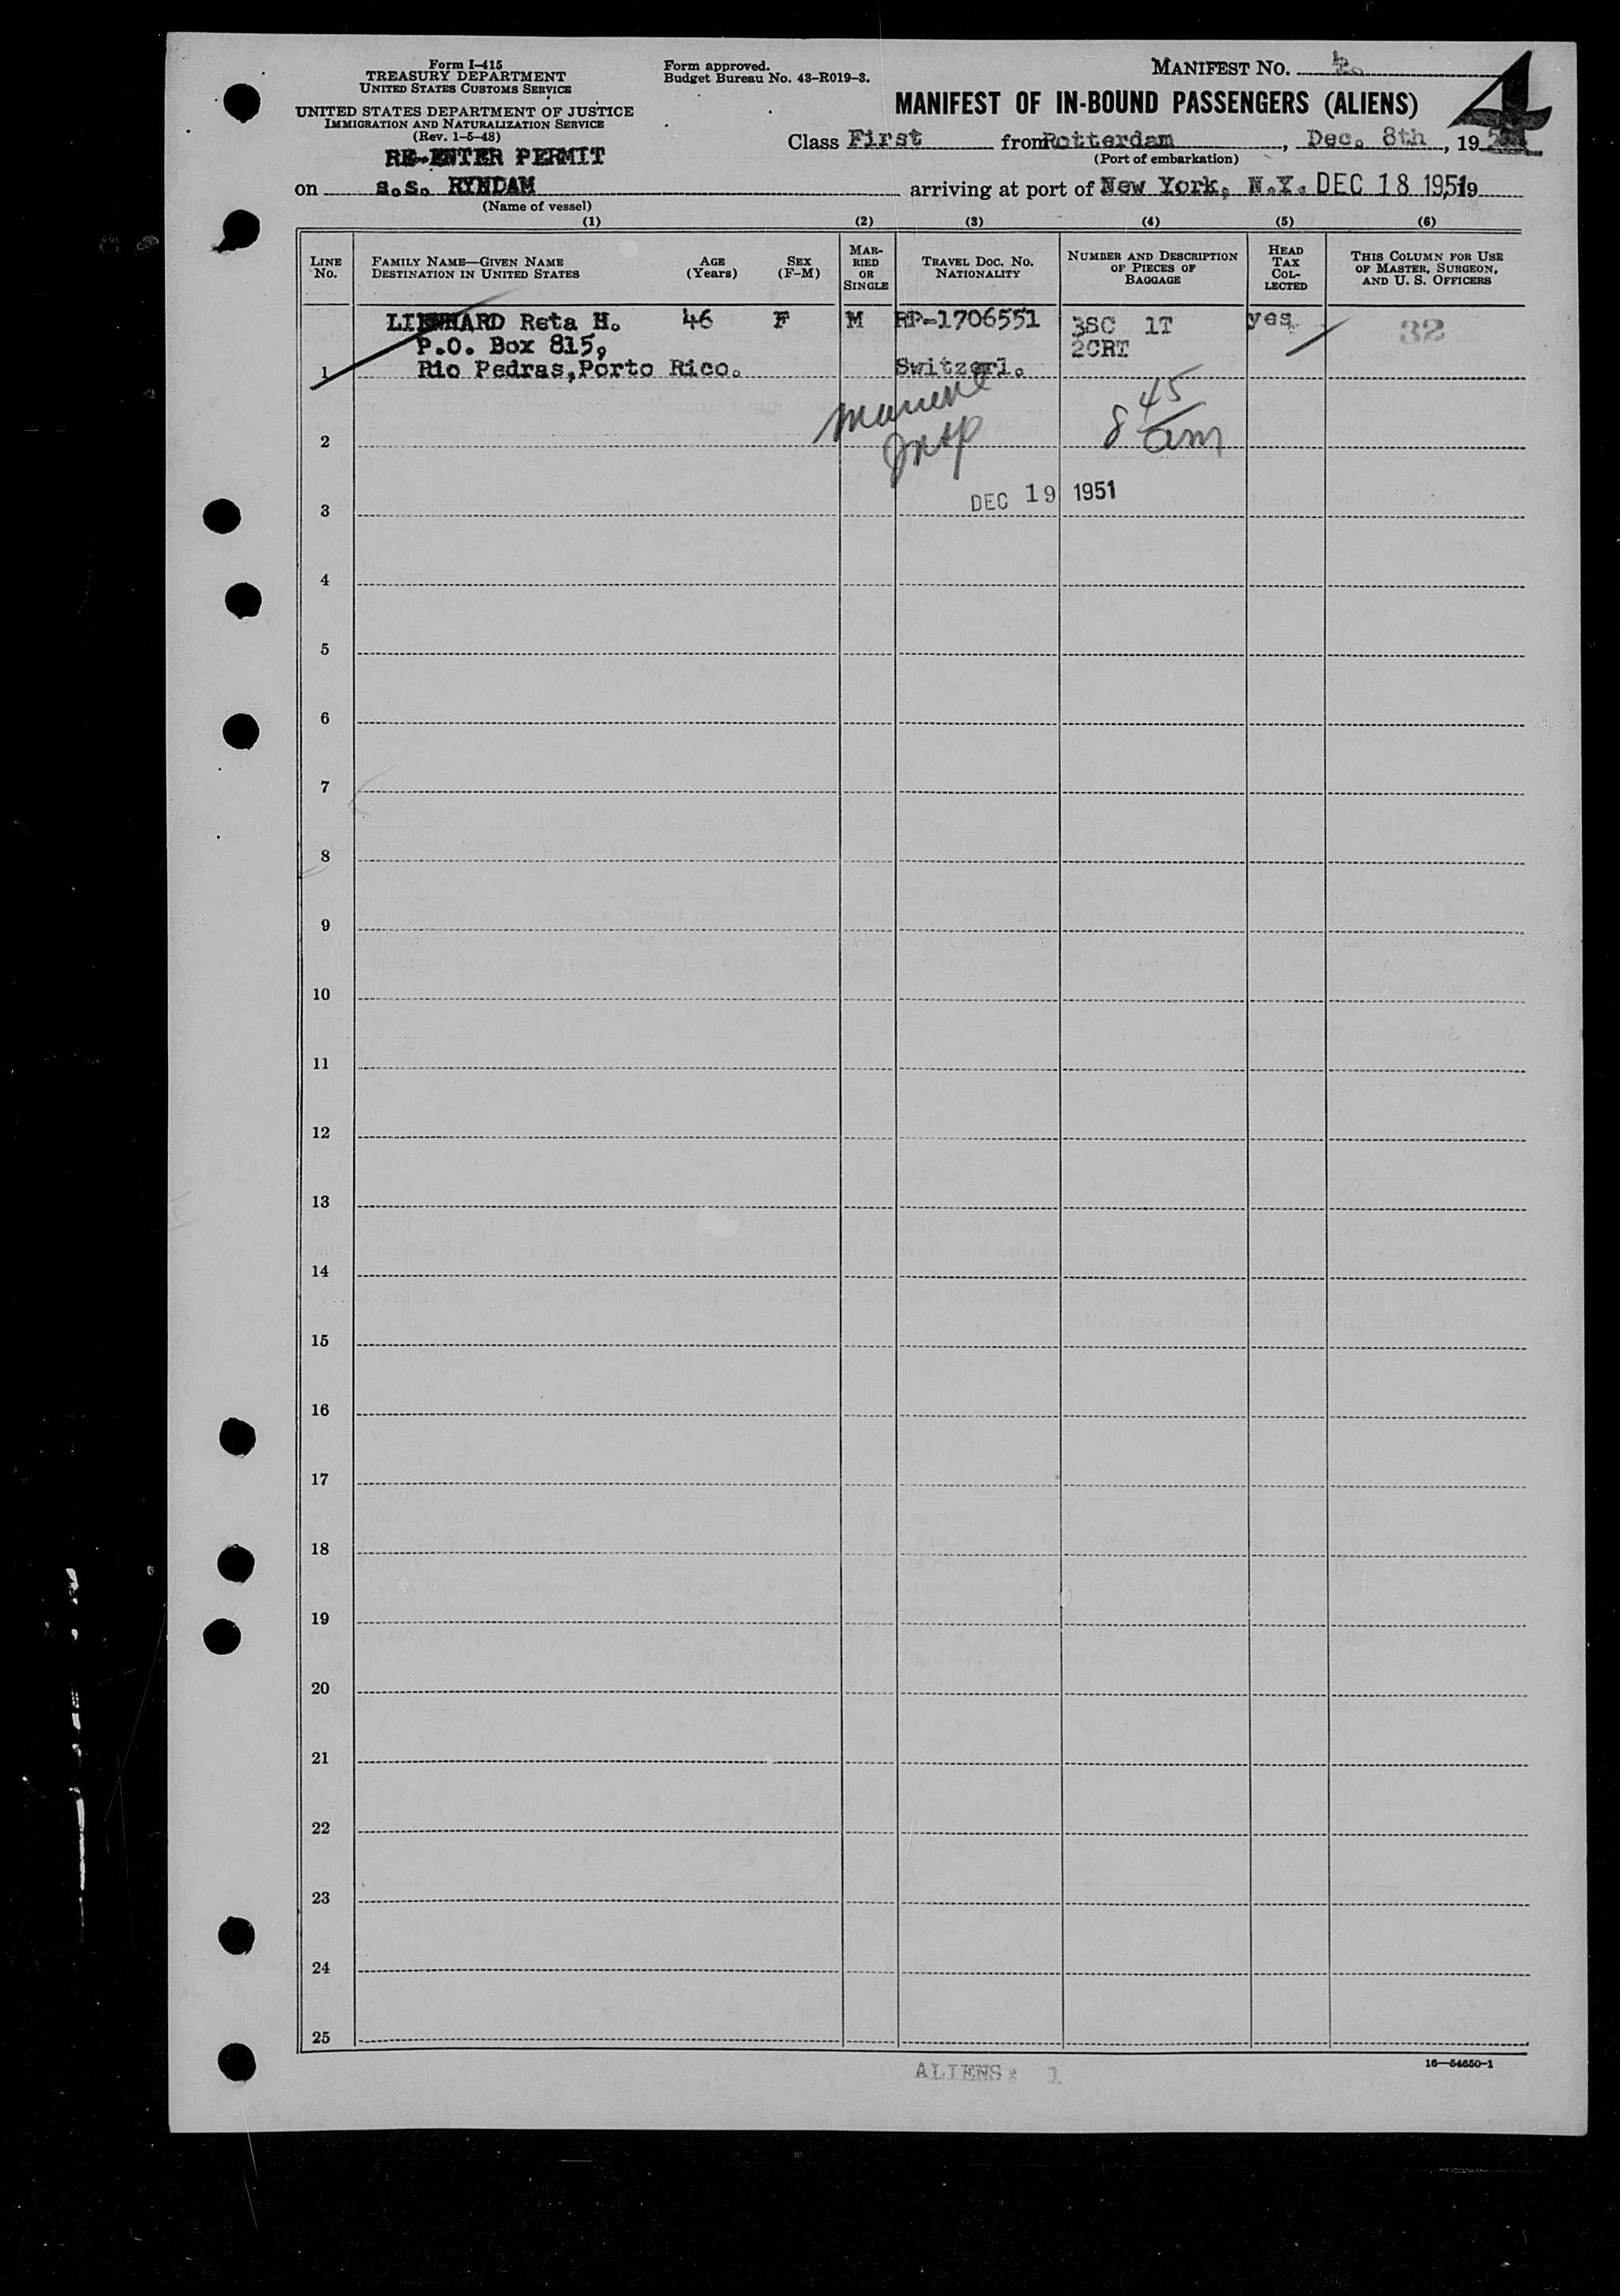 Form I-415
TREASURY DEPARTMENT
UNITED STATES CUSTOMS SERVICE
UNITED STATES DEPARTMENT OF JUSTICE
IMMIGRATION AND NATURALIZATION SERVICE
(Rev. 1-5-48)
Form approved.
Budget Bureau No. 43-R019-3.
MANIFEST NO. 4.
4
MANIFEST OF IN-BOUND PASSENGERS (ALIENS)
RE-ENTER PERMIT
Class First from Rotterdam, Dec. 8th, 19
(Port of embarkation)
on s.s. RYNDAM arriving at port of New York, N.Y. DEC 18 1951, 19
(Name of vessel)
(1) (2) (3) (4) (5) (6)
LINE NO. FAMILY NAME—GIVEN NAME DESTINATION IN UNITED STATES AGE (Years) SEX (F-M) MARRIED OR SINGLE TRAVEL DOC. NO. NATIONALITY NUMBER AND DESCRIPTION OF PIECES OF BAGGAGE HEAD TAX COLLECTED THIS COLUMN FOR USE OF MASTER, SURGEON, AND U. S. OFFICERS
LIENHARD Reta H. 46 F M RP-1706551 3SC 1T yes 32
P.O. Box 815, 2CRT
1 Rio Pedras, Porto Rico. Switzerl.
8 45 am
2
Insp
DEC 19 1951
3
4
5
6
7
8
9
10
11
12
13
14
15
16
17
18
19
20
21
22
23
24
25
ALIENS: 1
16—54650-1